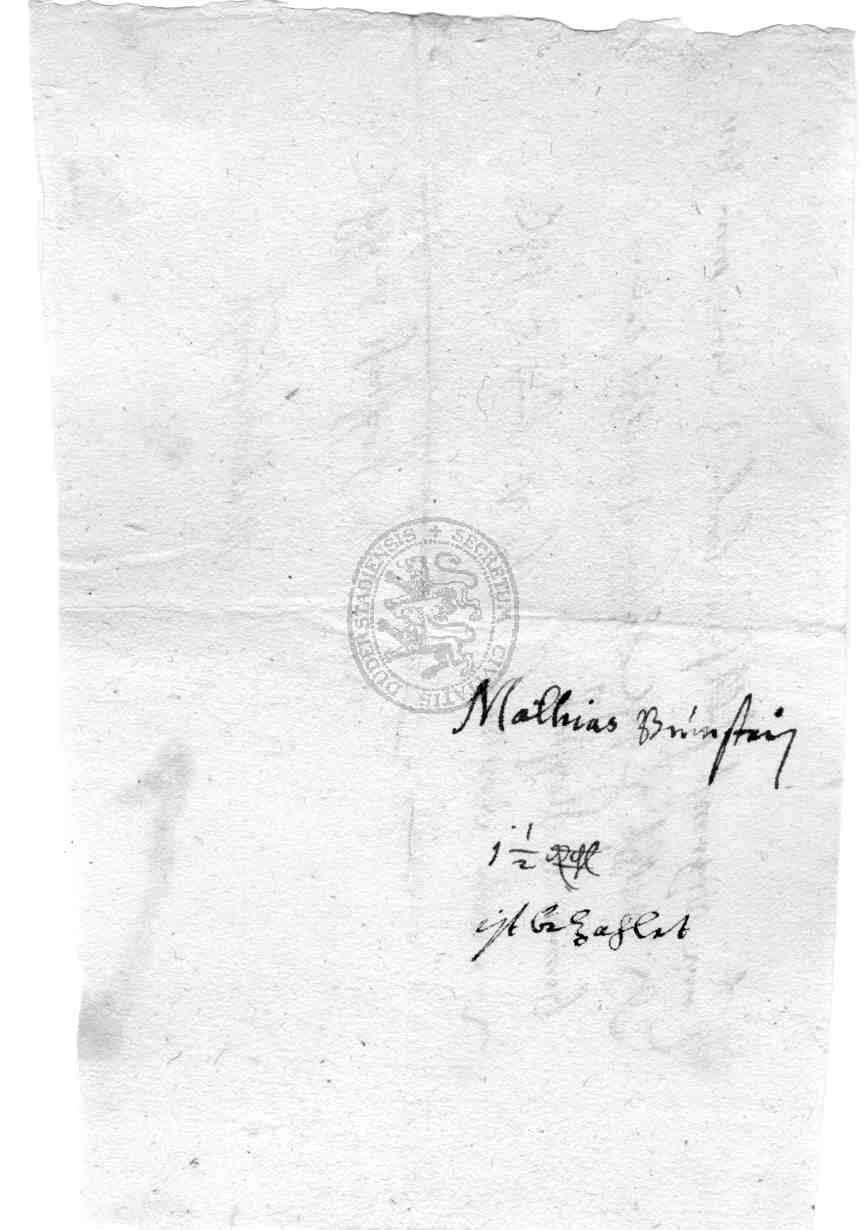 SECRETUM CIVITATIS DUDERSTADIENSIS
Mathias Brunstein
1 1/2 Rthl
ist bezahlet